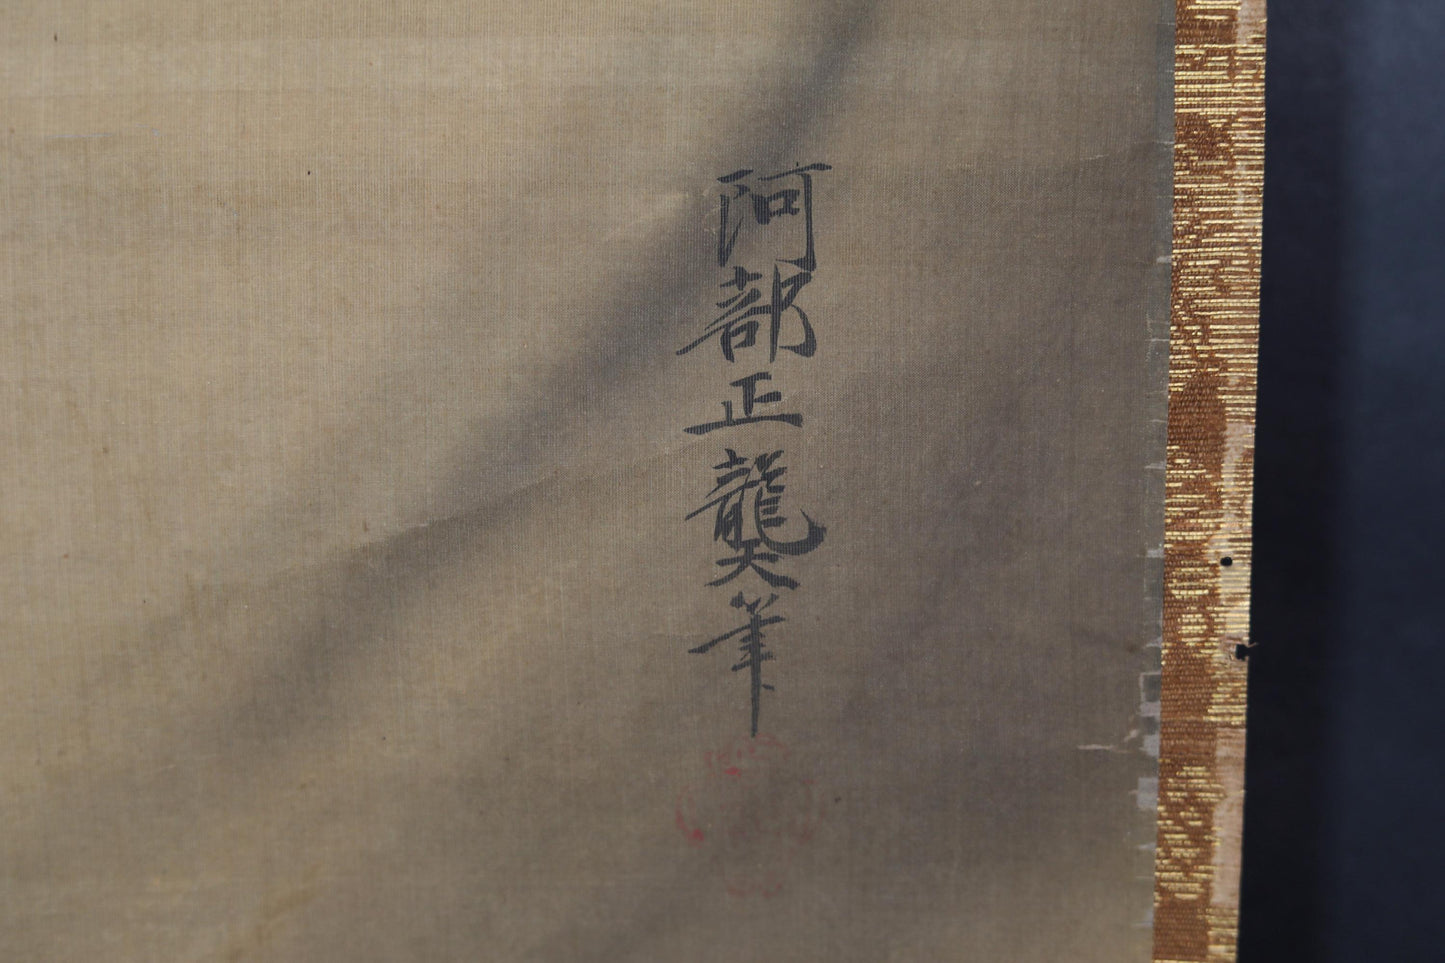 阿部正龑筆